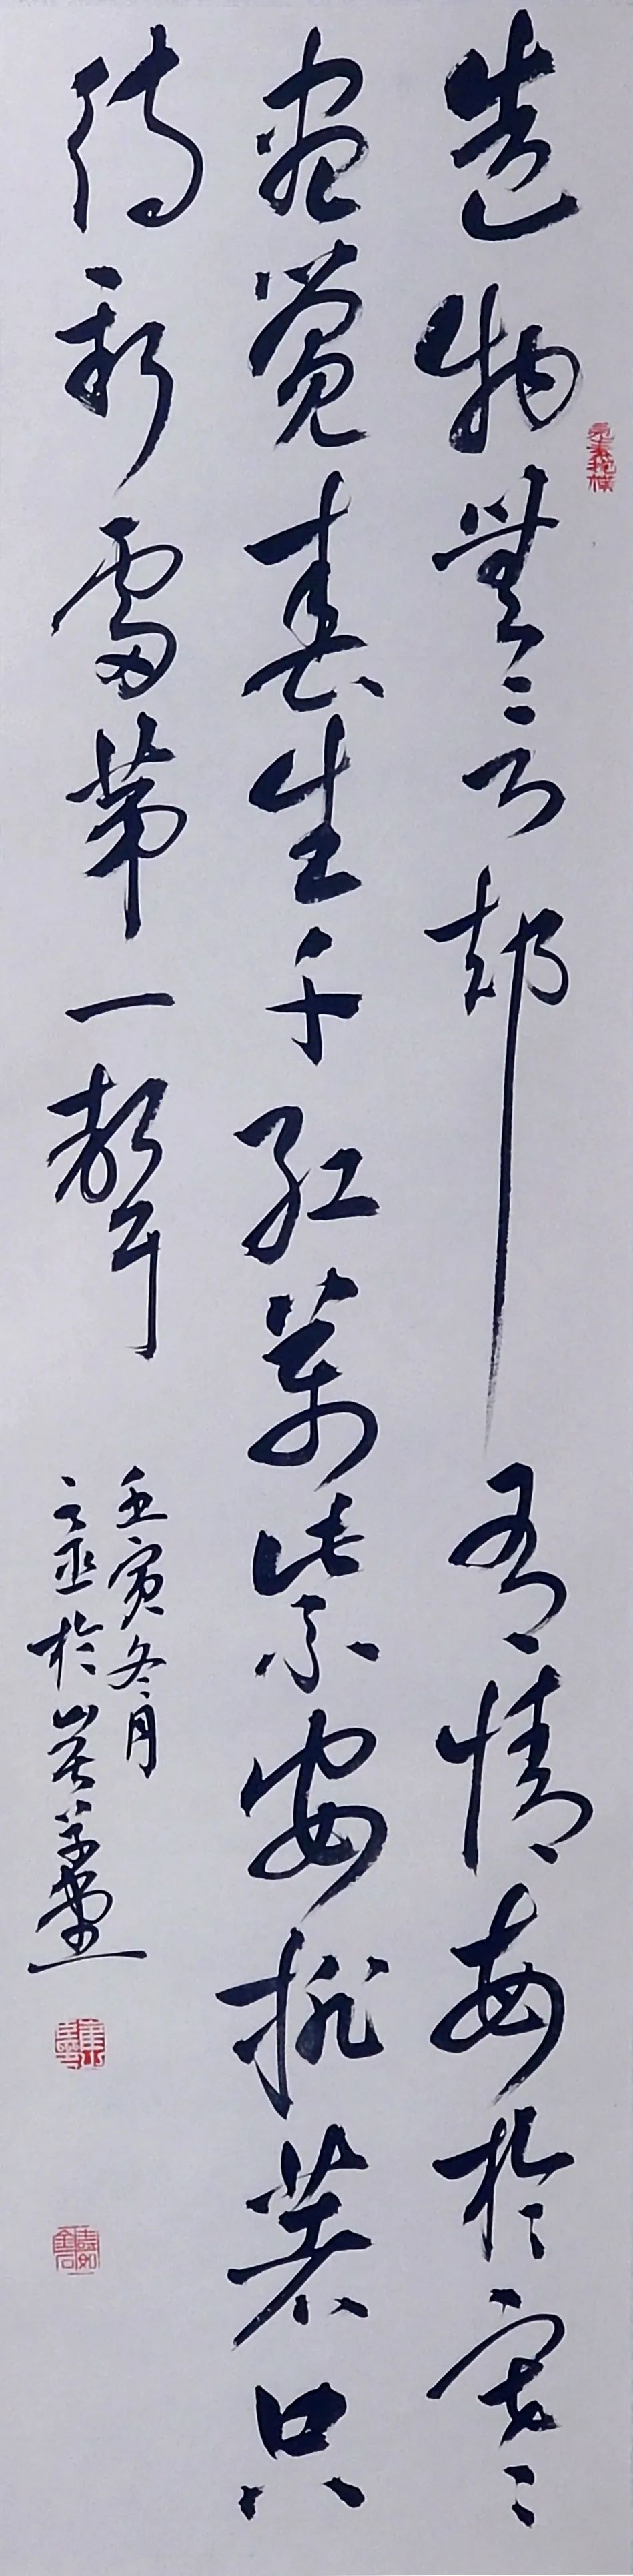 造物無言却有情每於寒
盡覺春生千紅萬紫安排著只
待新雷第一聲
壬寅冬月
之丞於